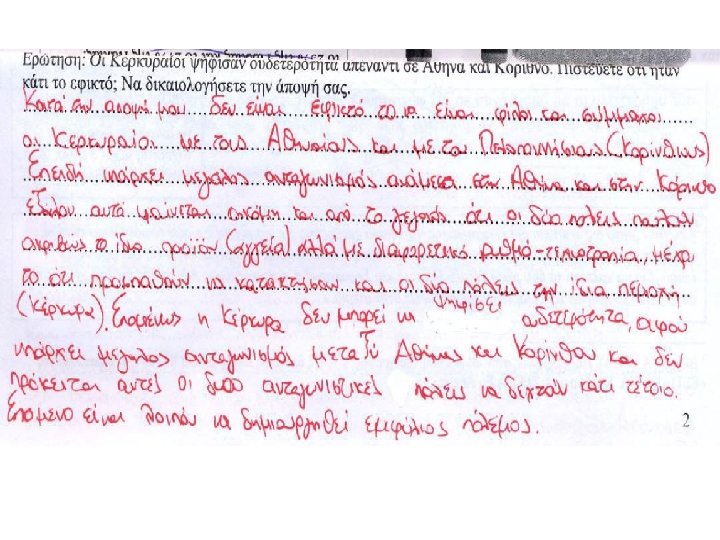 Ερώτηση: Οι Κερκυραίοι ψήφισαν ουδετερότητα απέναντι σε Αθήνα και Κόρινθο. Πιστεύετε ότι ήταν
κάτι το εφικτό; Να δικαιολογήσετε την άποψή σας.
Κατά την άποψή μου δεν είναι εφικτό το να είναι φίλοι και σύμμαχοι
οι Κερκυραίοι με τους Αθηναίους και με του Πελοποννήσιους (Κορίνθιους)
Επειδή υπάρχει μεγάλος ανταγωνισμός ανάμεσα στην Αθήνα και στην Κόρινθο
αυτό φαίνεται ακόμη και από το γεγονός ότι οι δύο πόλεις πουλούν
ακριβώς το ίδιο προϊόν (αγγεία) αλλά με διαφορετικό ρυθμό-τεχνοτροπία, μέχρι
το ότι προσπαθούν να κατακτήσουν και οι δύο πόλεις την ίδια περιοχή
(Κέρκυρα). Επομένως η Κέρκυρα δεν μπορεί να ψηφίσει ουδετερότητα, αφού
υπάρχει μεγάλος ανταγωνισμός μεταξύ Αθήνας και Κορίνθου και δεν
πρόκειται αυτές οι δύο ανταγωνιστικές πόλεις να δεχτούν κάτι τέτοιο.
Επόμενο είναι λοιπόν να δημιουργηθεί εμφύλιος πόλεμος.
2